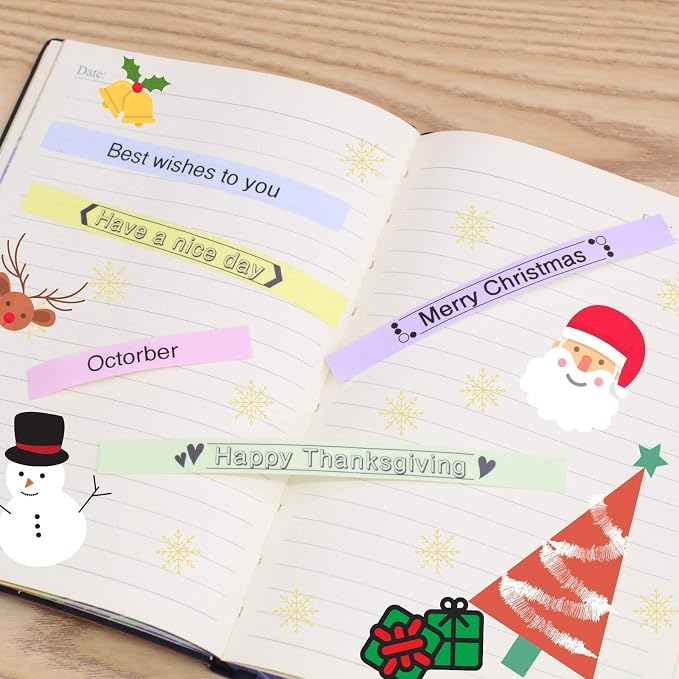 Date:
Best wishes to you
Have a nice day
Merry Christmas
Octorber
Happy Thanksgiving